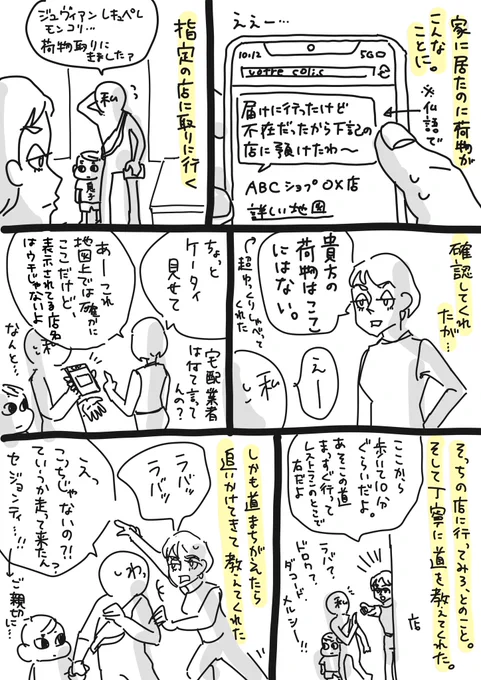 家に居たのに荷物が
こんな
ことに。
※仏語で
ええー…
10:12
5G
votre colis
届けに行ったけど
不在だったから下記の
店に預けたわ〜
ABCショップOX店
詳しい地図
指定の店に取りに行く
ジュヴィアン レキュペレ
モンコリ…
荷物取りに
きました?
私
息子
確認してくれ
たが…
貴方の
荷物はここ
にはない。
超ゆっくりしゃべって
くれた
えー
私
ちょっと
ケータイ
見せて
宅配業者
はなて言って
んの?
あーこれ
地図上では確かに
ここだけど
表示されてる店名
はウチじゃないよ
私
なんと…
そっちの店に行ってみろとのこと。
そして丁寧に道を教えてくれた。
ここから
歩いて10分
ぐらいだよ。
あそこの道
まっすぐ行って
レストランのとこで
右だよ
ラバ?
ドロワ?
ダコード、
メルシー!!
私
店
しかも道まちがえたら
追いかけてきて教えてくれた
ラバッ
ラバッ
えっ
こっちじゃないの?!
ていうか走って来たん?
セジョンティ…!!
ご親切に…
わっ